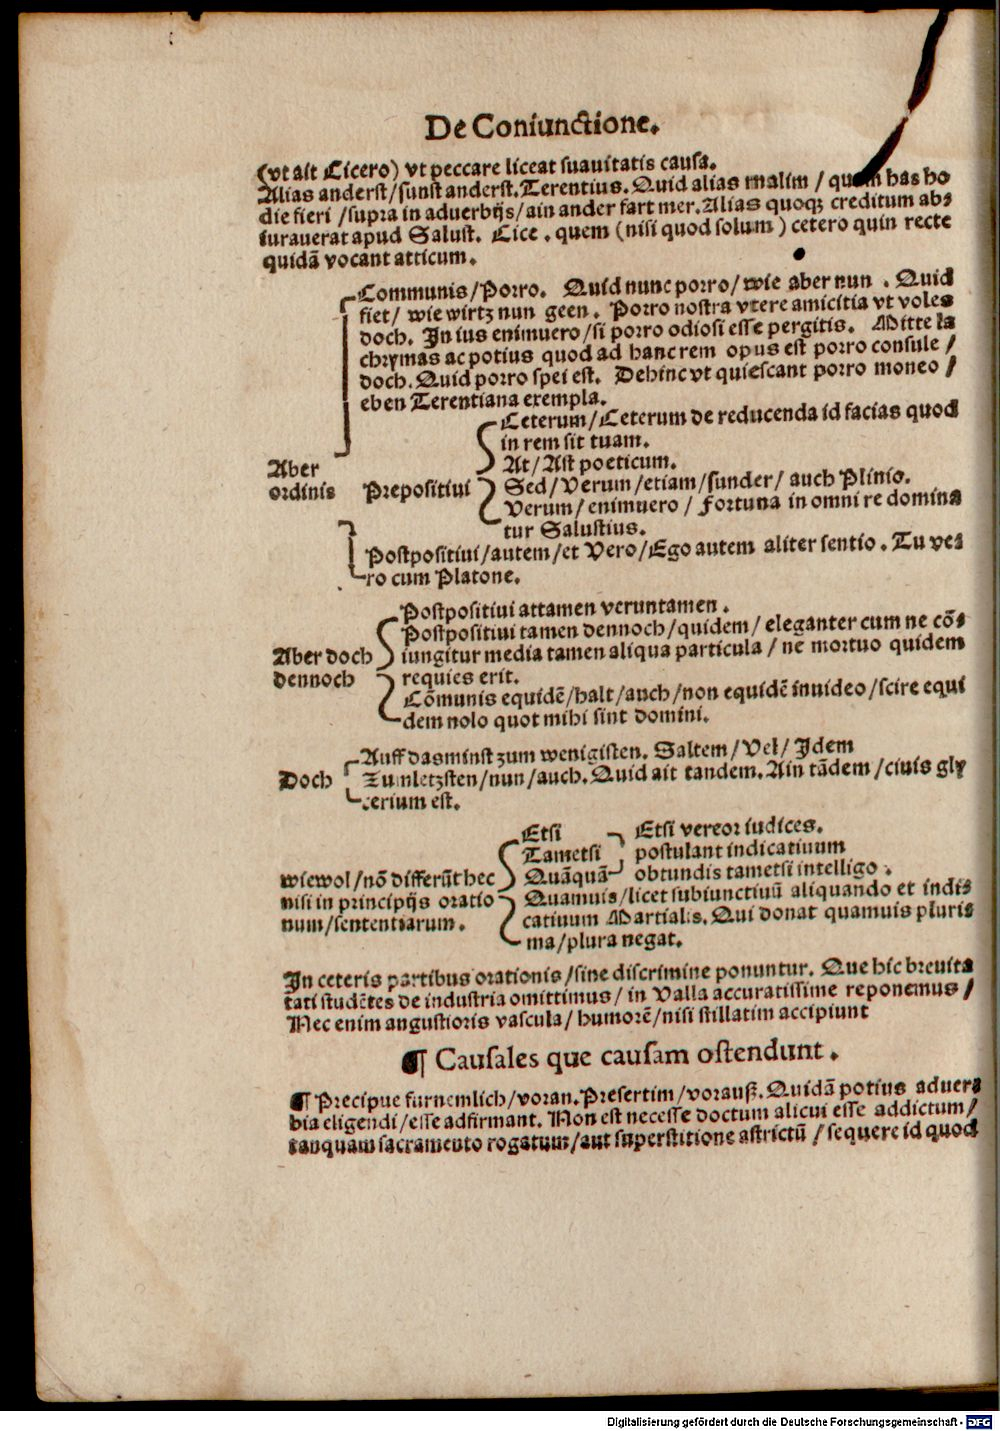 De Coniunctione.
(vt ait Cicero) vt peccare liceat suauitatis causa.
Alias anderst/sunst anderst. Terentius. Quid alias malim / quam has ho
die fieri /supra in aduerbijs/ain ander fart mer. Alias quoqꝫ creditum ab⸗
iurauerat apud Salust. Cice . quem (nisi quod solum ) cetero quin recte
quidā vocant atticum.
Communis/Porro. Quid nunc porro/ wie aber nun . Quid
fiet/ wie wirtz nun geen . Porro nostra vtere amicitia vt voles
doch. In ius enimuero/si porro odiosi esse pergitis. Mitte la
chrymas ac potius quod ad hanc rem opus est porro consule /
doch. Quid porro spei est. Dehinc vt quiescant porro moneo /
eben Terentiana exempla.
Ceterum/Ceterum de reducenda id facias quod
in rem sit tuam.
At/Ast poeticum.
Aber
ordinis Prepositiui
Sed/Verum/etiam/sunder/ auch Plinio.
Verum/ enimuero / Fortuna in omni re domina
tur Salustius.
Postpositiui/autem/et Vero/Ego autem aliter sentio . Tu ve⸗
ro cum Platone.
Postpositiui attamen veruntamen .
Postpositiui tamen dennoch/quidem/ eleganter cum ne cō⸗
Aber doch iungitur media tamen aliqua particula / ne mortuo quidem
dennoch requies erit.
Cōmunis equidē/halt/auch/non equidē inuideo/scire equi
dem nolo quot mihi sint domini.
Auff dasminst zum wenigisten. Saltem/Vel/ Idem
Doch Zumletzsten/nun/auch. Quid ait tandem. Ain tādem/ciuis gly
cerium est.
Etsi Etsi vereor iudices.
Tametsi postulant indicatiuum
wiewol/nō differūt hec Quāquā obtundis tametsi intelligo .
nisi in principijs oratio Quamuis/licet subiunctiuū aliquando et indi⸗
num/sententiarum . catiuum Martialis. Qui donat quamuis pluri⸗
ma/plura negat.
In ceteris partibus orationis/sine discrimine ponuntur. Que hic breuita
tati studētes de industria omittimus/ in Valla accuratissime reponemus /
Nec enim angustioris vascula/ humorē/nisi stillatim accipiunt
¶ Causales que causam ostendunt .
¶ Precipue furnemlich/voran. Presertim/vorauß. Quidā potius aduer⸗
bia eligendi/esse adfirmant. Non est necesse doctum alicui esse addictum/
tanquam sacramento rogatum/aut superstitione astrictū /sequere id quod
Digitalisierung gefördert durch die Deutsche Forschungsgemeinschaft - DFG